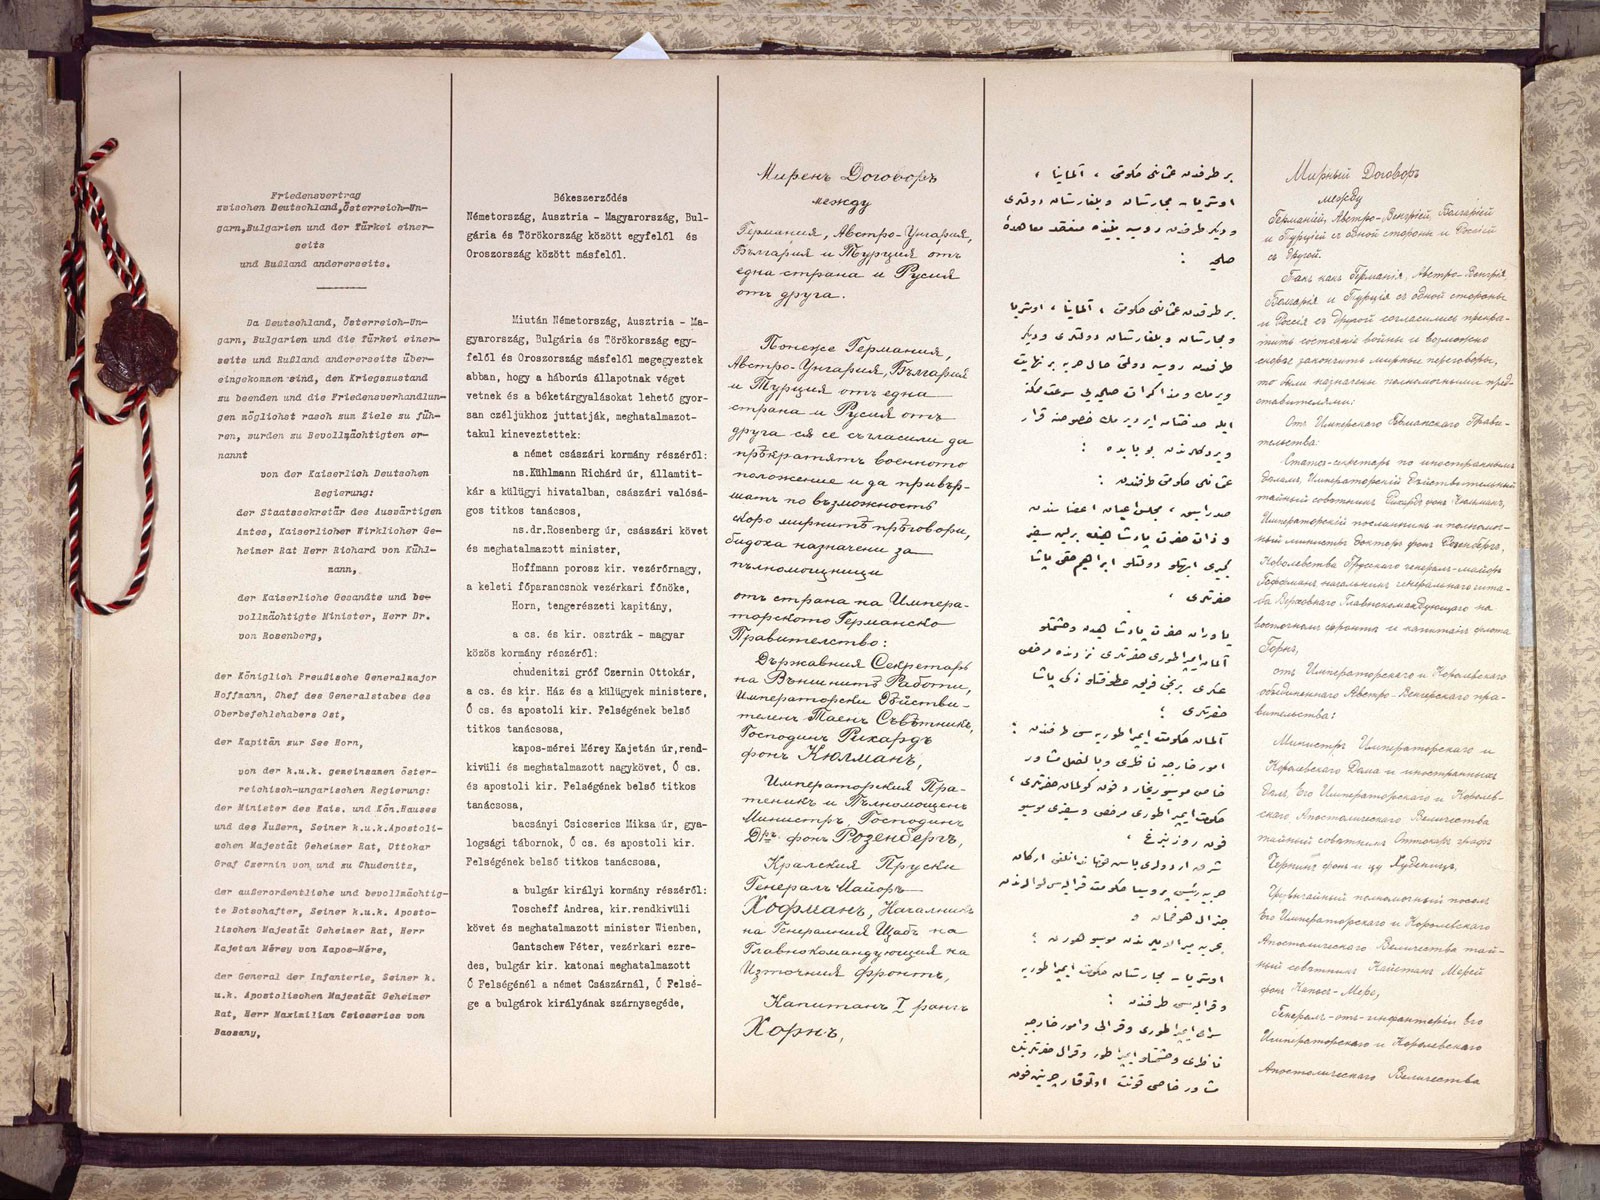 Friedensvertrag
zwischen Deutschland,Österreich-Un-
garn,Bulgarien und der Türkei einer-
seits
und Rußland andererseits.
Da Deutschland, Österreich-Un-
garn, Bulgarien und die Türkei einer-
seits und Rußland andererseits über-
eingekommen sind, den Kriegszustand
zu beenden und die Friedensverhandlun-
gen möglichst rasch zum Ziele zu füh-
ren, wurden zu Bevollmächtigten er-
nannt
von der Kaiserlich Deutschen
Regierung:
der Staatssekretär des Auswärtigen
Amtes, Kaiserlicher Wirklicher Ge-
heimer Rat Herr Richard von Kühl-
mann,
der Kaiserliche Gesandte und be-
vollmächtigte Minister, Herr Dr.
von Rosenberg,
der Königlich Preußische Generalmajor
Hoffmann, Chef des Generalstabes des
Oberbefehlshabers Ost,
der Kapitän zur See Horn,
von der k.u.k. gemeinsamen öster-
reichisch-ungarischen Regierung:
der Minister des Kais. und Kön.Hauses
und des Äußern, Seiner k.u.k.Apostoli-
schen Majestät Geheimer Rat, Ottokar
Graf Czernin von und zu Chudenitz,
der außerordentliche und bevollmächtig-
te Botschafter, Seiner k.u.k. Aposto-
lischen Majestät Geheimer Rat, Herr
Kajetan Mérey von Kapos-Mére,
der General der Infanterie, Seiner k.
u.k. Apostolischen Majestät Geheimer
Rat, Herr Maximilian Csicserics von
Bacsany,
Békeszerződés
Németország, Ausztria - Magyarország, Bul-
gária és Törökország között egyfelől és
Oroszország között másfelől.
Miután Németország, Ausztria - Ma-
gyarország, Bulgária és Törökország egy-
felől és Oroszország másfelől megegyeztek
abban, hogy a háborús állapotnak véget
vetnek és a béketárgyalásokat lehető gyor-
san czéljukhoz juttatják, meghatalmazot-
takul kineveztettek:
a német császári kormány részéről:
ns.Kühlmann Richárd úr, államtit-
kár a külügyi hivatalban, császári valósá-
gos titkos tanácsos,
ns.dr.Rosenberg úr, császári követ
és meghatalmazott minister,
Hoffmann porosz kir. vezérőrnagy,
a keleti főparancsnok vezérkari főnöke,
Horn, tengerészeti kapitány,
a cs. és kir. osztrák - magyar
közös kormány részéről:
chudenitzi gróf Czernin Ottokár,
a cs. és kir. Ház és a külügyek ministere,
Ő cs. és apostoli kir. Felségének belső
titkos tanácsosa,
kapos-mérei Mérey Kajetán úr,rend-
kivüli és meghatalmazott nagykövet, Ő cs.
és apostoli kir. Felségének belső titkos
tanácsosa,
bacsányi Csicserics Miksa úr, gya-
logsági tábornok, Ő cs. és apostoli kir.
Felségének belső titkos tanácsosa,
a bulgár királyi kormány részéről:
Toscheff Andrea, kir.rendkivüli
követ és meghatalmazott minister Wienben,
Gantschew Péter, vezérkari ezre-
des, bulgár kir. katonai meghatalmazott
Ő Felségénél a német Császárnál, Ő Felsé-
ge a bulgárok királyának szárnysegéde,
Миренъ Договоръ
между
Германия, Австро-Унгария,
България и Турция отъ
една страна и Русия
отъ друга.
Понеже Германия,
Австро-Унгария, България
и Турция отъ една
страна и Русия отъ
друга ся се съгласили да
прѣкратятъ военното
положение и да привър-
шатъ по възможность
скоро мирнитѣ прѣговори,
бидоха назначени за
пълномощници
отъ страна на Импера-
торското Германско
Правителство:
Държавния Секретарь
на Външнитѣ Работи,
Императорски Дѣйстви-
теленъ Таенъ Съвѣтникъ,
Господинъ Рихардъ
фонъ Кюлманъ,
Императорския Пра-
теникъ и Пълномощенъ
Министръ, Господинъ
Д-ръ фонъ Розенбергъ,
Кралския Пруски
Генералъ Майоръ
Хофманъ, Началникъ
на Генералния Щабъ на
Главнокомандующия на
Източния фронтъ,
Капитанъ I рангъ
Хорнъ,
بر طرفدن عثمانلی حکومتی ، آلمانیا ،
اوستریا - مجارستان و بلغارستان دولتلری
و دیگر طرفدن روسیه بیننده منعقد معاهدهٔ
صلحیه :
بر طرفدن عثمانلی حکومتی ، آلمانیا ، اوستریا
و مجارستان و بلغارستان دولتلری و دیگر
طرفدن روسیه دولتی حال حربه بر نهایت
ویرمك و مذاکرات صلحیه‌یی سرعت ممکنه
ایله
ویردکلرندن بو بابده :
عثمانلی حکومتی طرفندن :
صدر اسبق ، مجلس اعیان اعضاسندن
و ذات حضرت پادشاهینك برلین سفیر
کبیری ابهتلو دولتلو ابراهیم حقی پاشا
حضرتلری ،
یاوران حضرت پادشاهیدن و حشمتلو
آلمان ایمپراطوری حضرتلری نزدنده مرخص
عسکری برنجی فریق عطوفتلو زکی پاشا
حضرتلری ؛
آلمان حکومت ایمپراطوریه‌سی طرفندن :
امور خارجیه ناظری و بالفعل مشاور
خاص موسیو ریخارد فون کولمان حضرتلری ،
حکومت ایمپراطوری مرخصی و سفیری موسیو
فون روزنبرغ ،
شرق اردولری باش قوماندانلغی ارکان
حربیه رئیسی پروسیا حکومت قرالیه‌سی لوالرندن
جنرال هوفمان و
بحریه میرالایلرندن موسیو هورن ؛
اوستریا - مجارستان حکومت ایمپراطوریه
و قرالیه‌سی طرفندن :
سرای ایمپراطوری و قرالی و امور خارجیه
ناظری و حشمتلو ایمپراطور و قرال حضرتلرینك
مشاور خاصی قونت اوتوقار چرنین فون
Мирный Договоръ
между
Германіей, Австро-Венгріей, Болгаріей
и Турціей съ одной стороны и Россіей
съ другой.
Такъ какъ Германія, Австро-Венгрія,
Болгарія и Турція съ одной стороны
и Россія съ другой согласились прекра-
тить состояніе войны и возможно
скорѣе закончить мирные переговоры,
то были назначены полномочными пред-
ставителями:
Отъ Имперскаго Германскаго Прави-
тельства:
Статсъ-секретарь по иностраннымъ
дѣламъ, Императорскій дѣйствительный
тайный совѣтникъ Рихардъ фонъ Кюльманъ,
Императорскій посланникъ и полномоч-
ный министръ докторъ фонъ Розенбергъ,
Королевства Прусскаго генералъ-майоръ
Гофманъ, начальникъ генеральнаго шта-
ба Верховнаго Главнокомандующаго на
восточномъ фронтѣ и капитанъ флота
Горнъ,
отъ Императорскаго и Королевскаго
объединеннаго Австро-Венгерскаго пра-
вительства:
Министръ Императорскаго и
Королевскаго Дома и иностранныхъ
дѣлъ, Его Императорскаго и Королев-
скаго Апостолическаго Величества
тайный совѣтникъ Оттокаръ графъ
Чернинъ фонъ и цу Худеницъ,
Чрезвычайный полномочный посолъ
Его Императорскаго и Королевскаго
Апостолическаго Величества тай-
ный совѣтникъ Кайетанъ Мерей
фонъ Капосъ-Мере,
Генералъ-отъ-инфантеріи Его
Императорскаго и Королевскаго
Апостолическаго Величества